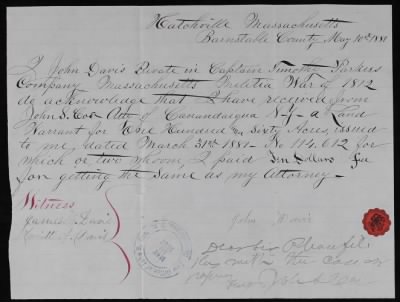 Hatchville Massachusetts
Barnstable County May 10th 1881
I John Davis Private in Captain Timothy Parkers
Company Massachusetts Militia War of 1812
do acknowledge that I have received from
John S. Coe Atty of Canandaigua N.Y. a Land
Warrant for One Hundred & Sixty Acres, issued
to me, dated March 31st 1881 - No 114.612 for
which or two whoom, I paid Ten Dollars Fee
for getting the same as my Attorney -
Witness
James Davis
Davis
John Davis
Dear Sir Please file
this with the Case as